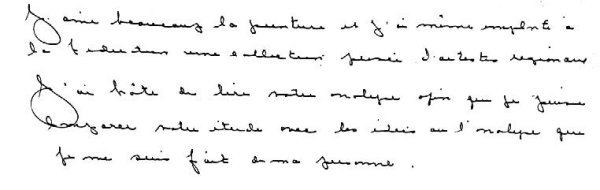 J'aime beaucoup la peinture et j'ai même emprunté à
la une collection privée d'artistes régionaux
J'ai hâte de lire votre analyse afin que je puisse
comparer votre étude avec les idées ou l'analyse que
je me suis fait de ma personne.